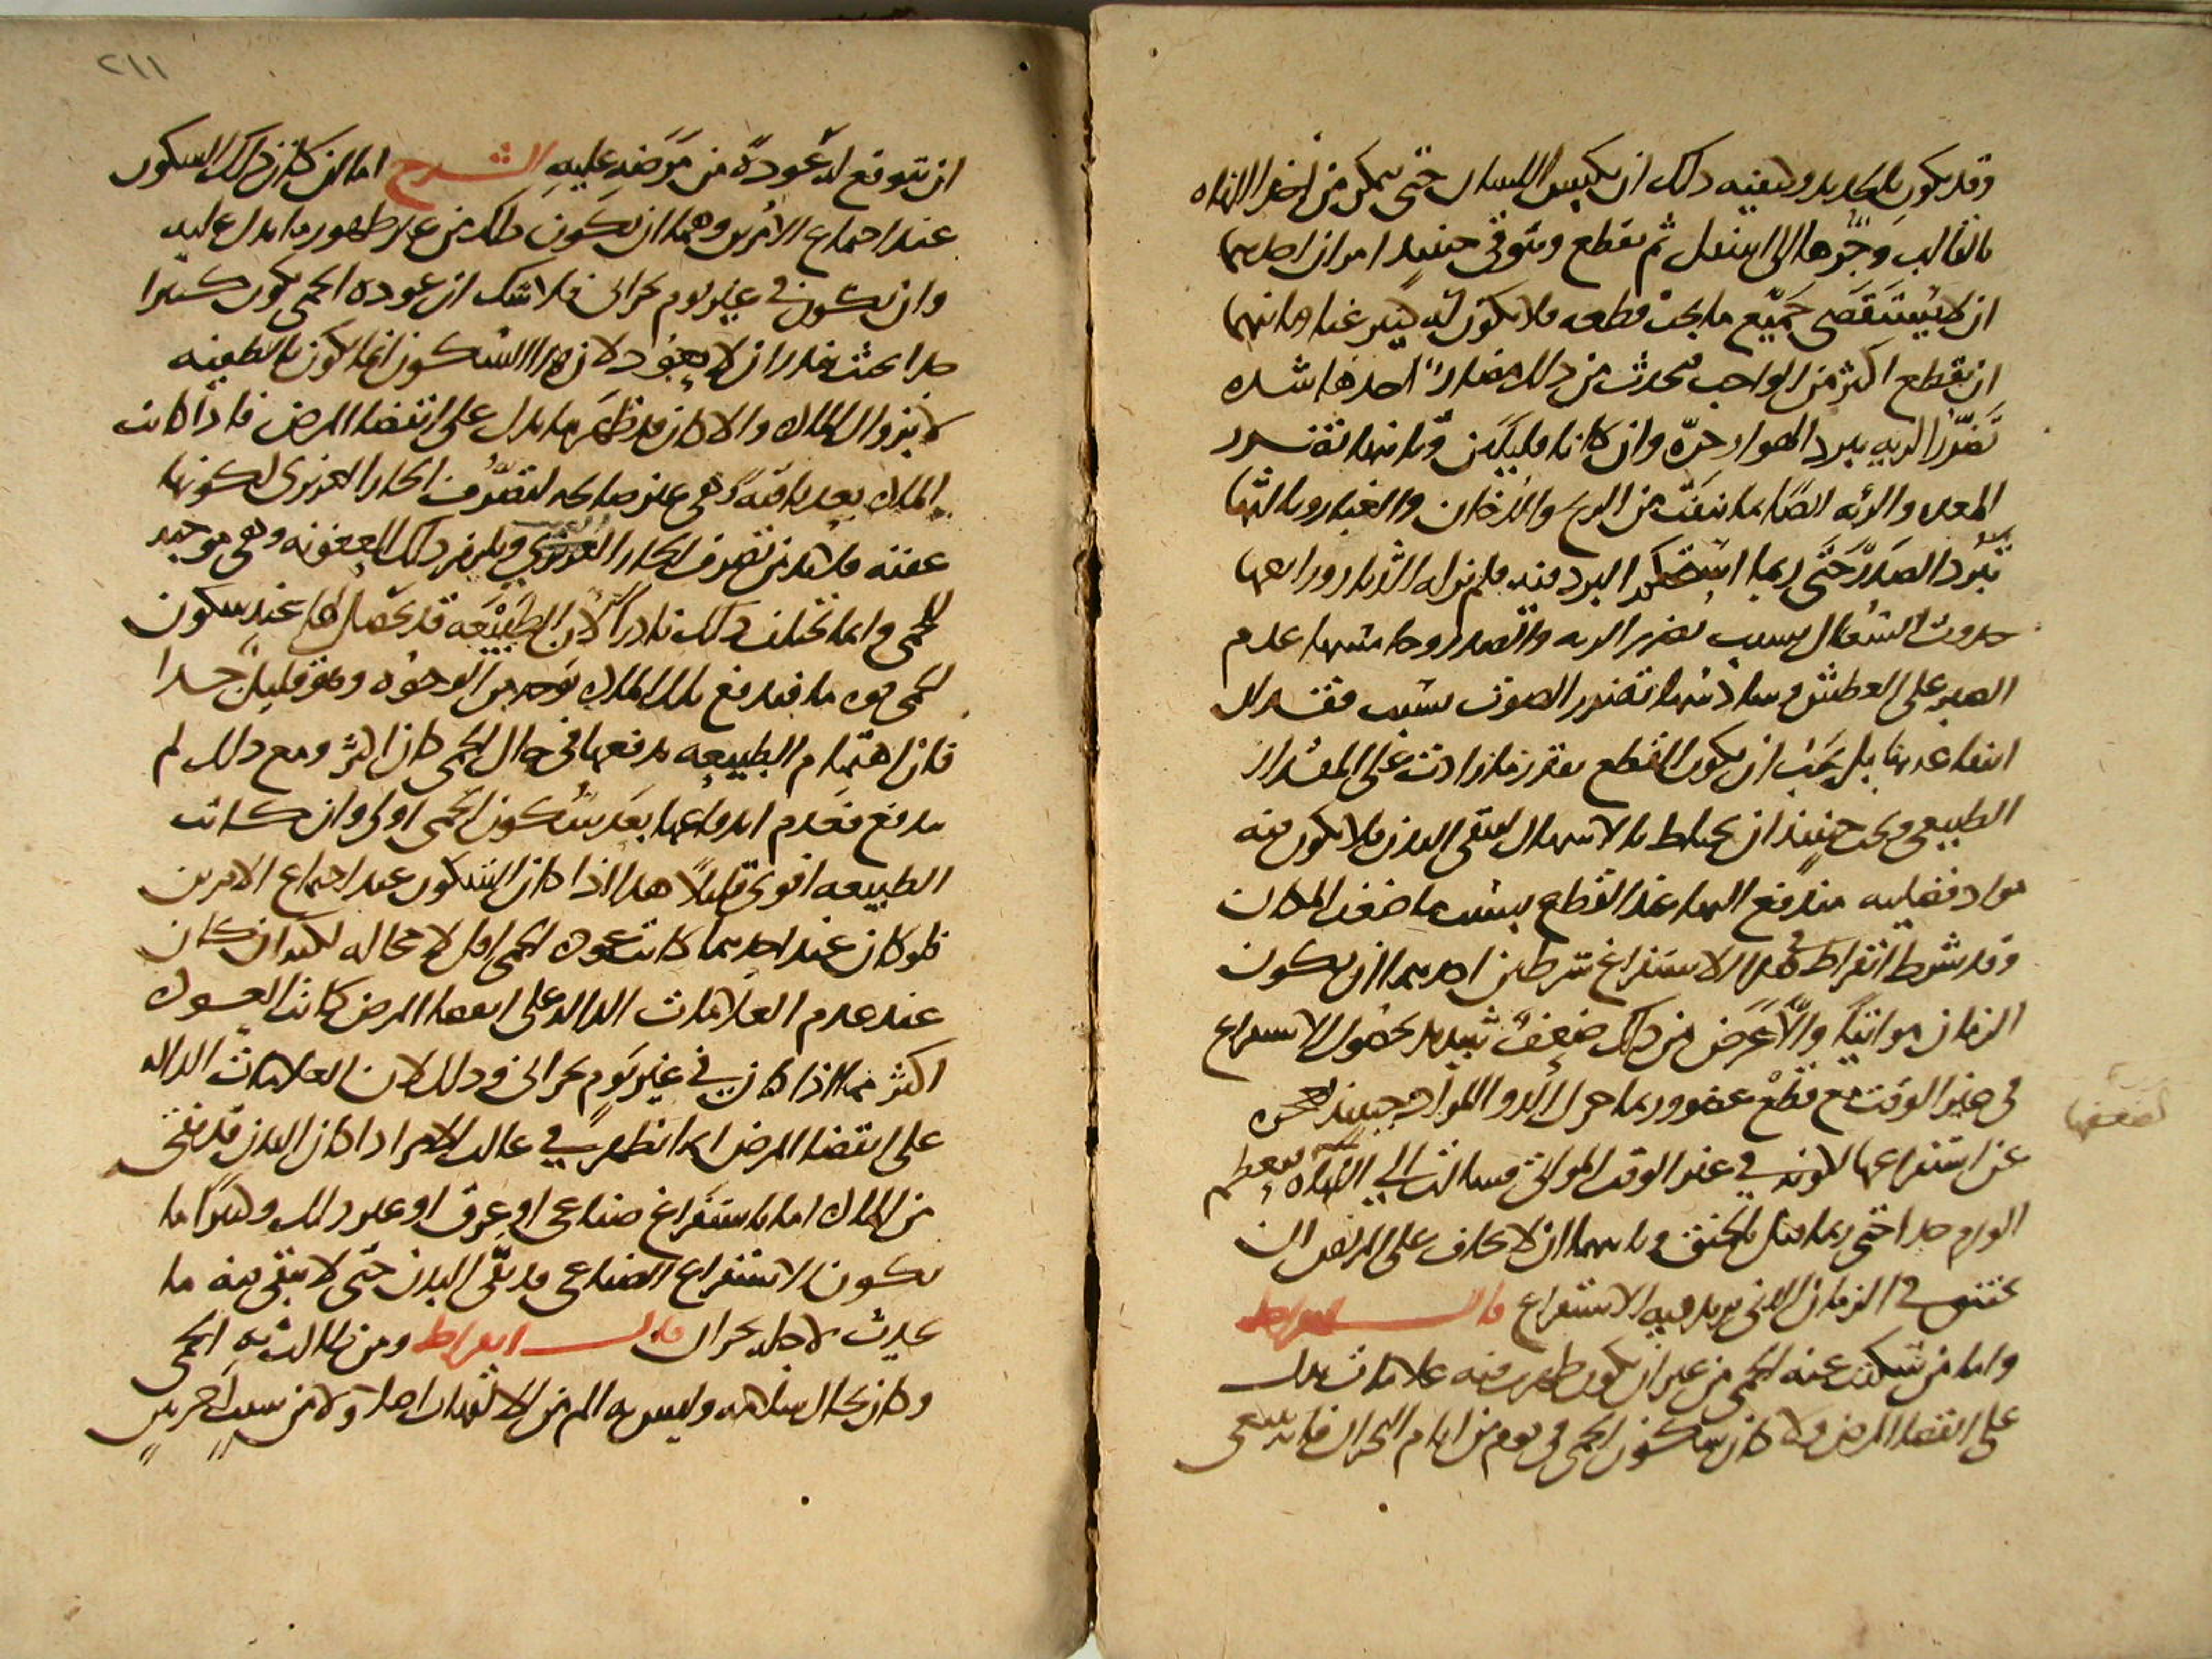 وقد يكون بالحديد وكيفيته ذلك ان يكبس اللسان حتى يمكن من اخذ اللهاة
بالقالب وجرّها الى اسفل ثم يقطع ويتوقى حينئذ امران احدهما
ان لا يستقصى جميع ما يجب قطعه فلا يكون فيه كبير غنا وثانيهما
ان يقطع اكثر من الواجب فيحدث من ذلك مضارّ احدها شدة
تضرّر الرية ببرد الهوا وحرّه وان كانا قليلين وثانيها تضرر
المعده والرئه ايضا بما ينفث من الريح والدخان والغبار وثالثها
تبرّد الصدر حتى ربما استحكم البرد فيه فلم يزل الثابر ورابعها
حدوث السعال بسبب تضرر الريه والصدر وخامسها عدم
الصبر على العطش وسادسها تضرر الصوت بسبب فقد
انتفاعه بها بل يجب ان يكون القطع بقدر ما زادت على المقدار
الطبيعي ويجب حينئذ ان يحتاط بالاسهال لينقى البدن فلا يكون فيه
مواد فضليه يندفع اليها عند القطع بسبب ضعف المكان
وقد شرط ابقراط في هذا الاستفراغ شرطين احدهما ان يكون
الزمان مواتيًا والّا عرض من ذلك ضعف شديد بحصول الاستفراغ
في غير الوقت مع قطع عضو وربما حرك الدوا المواد حينئذ
لضعفها
عن استفراغها لكونه في غير الوقت الموافق فسالت الى اللهاة فيعظم
الورم جدا حتى ربما قتل بالخنق وثانيهما ان لا يخاف على المريض ان
يختنق في الزمان الذي يريد فيه الاستفراغ قال ابقراط
واما من سكنت عنه الحمى من غير ان يكون ظهرت فيه علامات تدل
على انقضا المرض ولا كان سكون الحمى في يوم من ايام البحران فانه ينبغى
٢١١
ان يتوقع له عودة من مرضه عليه الشرح اما ان كان ذلك السكون
عند اجتماع الامرين وهما ان يكون ذلك من غير ظهور ما يدل عليه
وان يكون في غير يوم بحراني فلا شك ان عوده الحمى يكون كثيرا
جدا بحيث يندر ان لا يعود لان هذا السكون انما يكون بالطفيه
لا بزوال المادة والا كان قد ظهر ما يدل على انقضا المرض فاذا كانت
المادة بعد باقية وهى غير صالحه لتصرّف الحار الغريزى لكونها
عفنه فلابد من تصرف الحار الغريب ويلزم ذلك العفونه وهى موجبه
للحمى وانما تختلف ذلك نادرا لان الطبيعه قد يحصل لها عند سكون
الحمى قوه ما فيدفع تلك المادة بوجه من الوجوه وهو قليل جدا
فان اهتمام الطبيعه بدفعها في حال الحمى كان اكثر ومع ذلك لم
يدفع فعدم اندفاعها بعد سكون الحمى اولى وان كانت
الطبيعه اقوى قليلا هذا اذا كان السكون عند اجتماع الامرين
فلو كان عند احدهما كانت عوده الحمى اقل لا محاله لكنه ان كان
عند عدم العلامات الداله على انقضا المرض كانت العودة
اكثر مما اذا كان في غير يوم بحراني وذلك لان العلامات الداله
على انقضا المرض انما تظهر في غالب الامر اذا كان البدن قد نقى
من المادة اما باستفراغ صناعى او عرق او غير ذلك وكثيرًا ما
يكون الاستفراغ الصناعي قد نقّى البدن حتى لا يبقى فيه ما
يحدث لاجله بحران قال ابقراط ومن طالت به الحمى
وكان بحال سلامه وليس به الم من الالتهاب اصلا ولا من سبب اخر بين